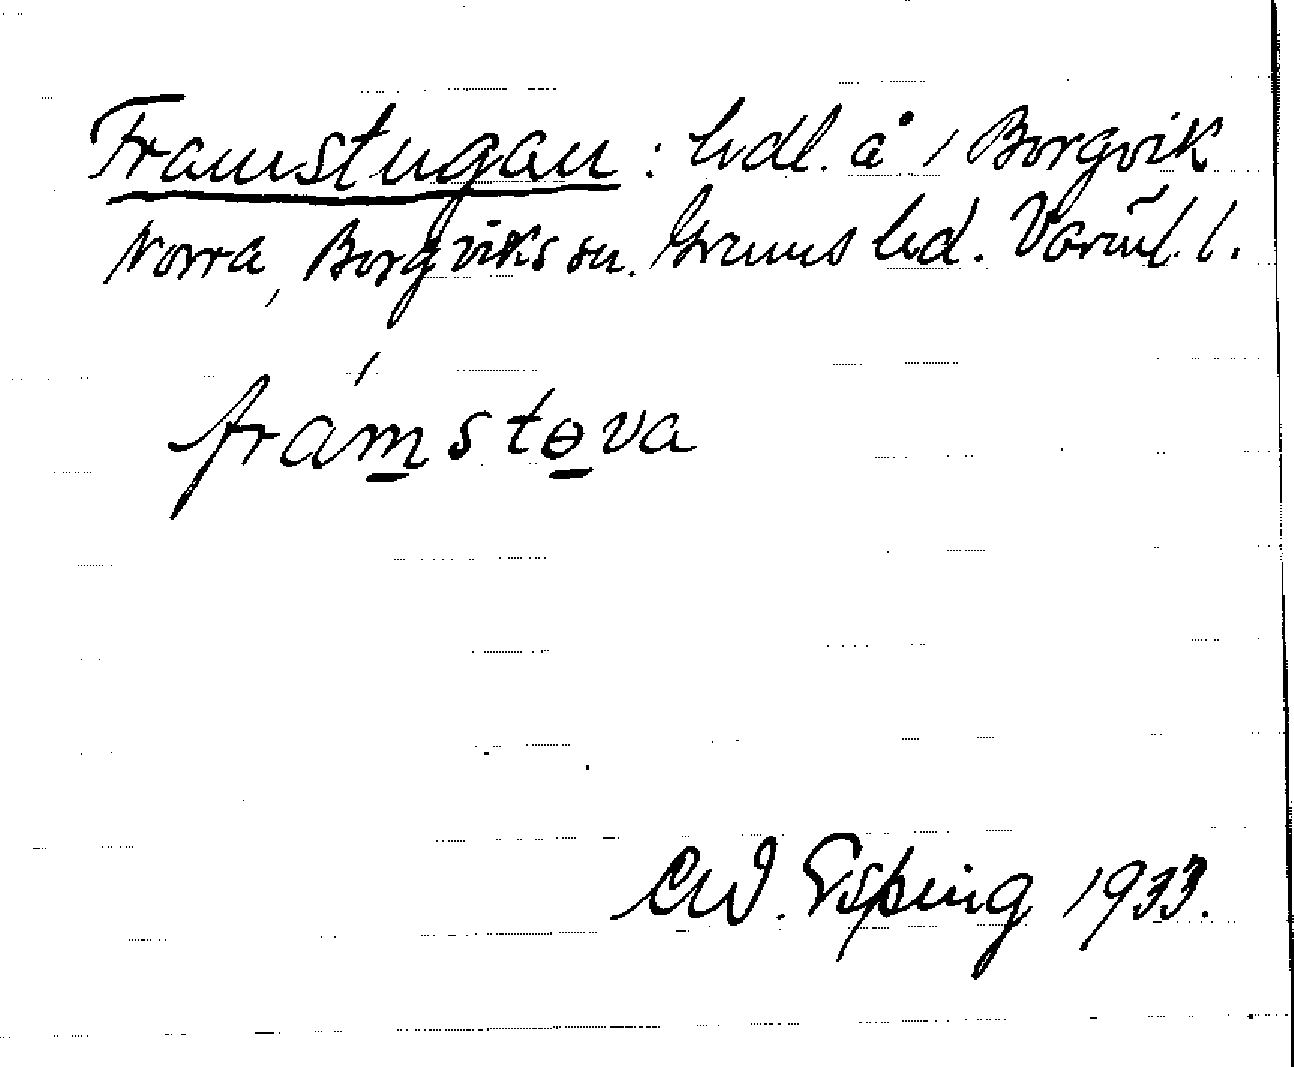 Framstugan: hdl. å / Borgvik
Norra, Borgviks sn. Grums hd. Värml. l.
frámstova
Ewd. Esping 1933.